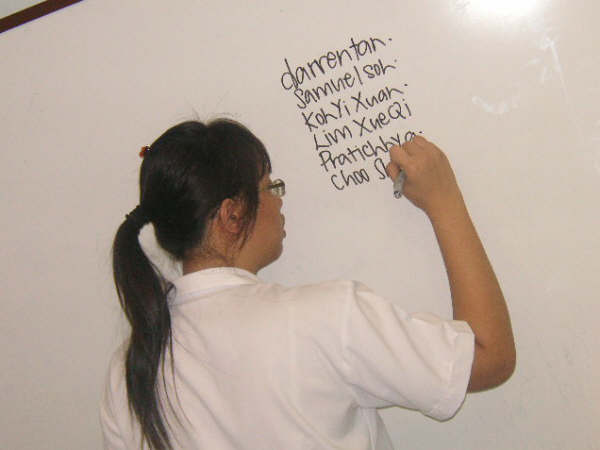 darrentan.
samuelsoh.
Koh Yi Xuan.
Lim Xue Qi
Pratichhya.
Choo